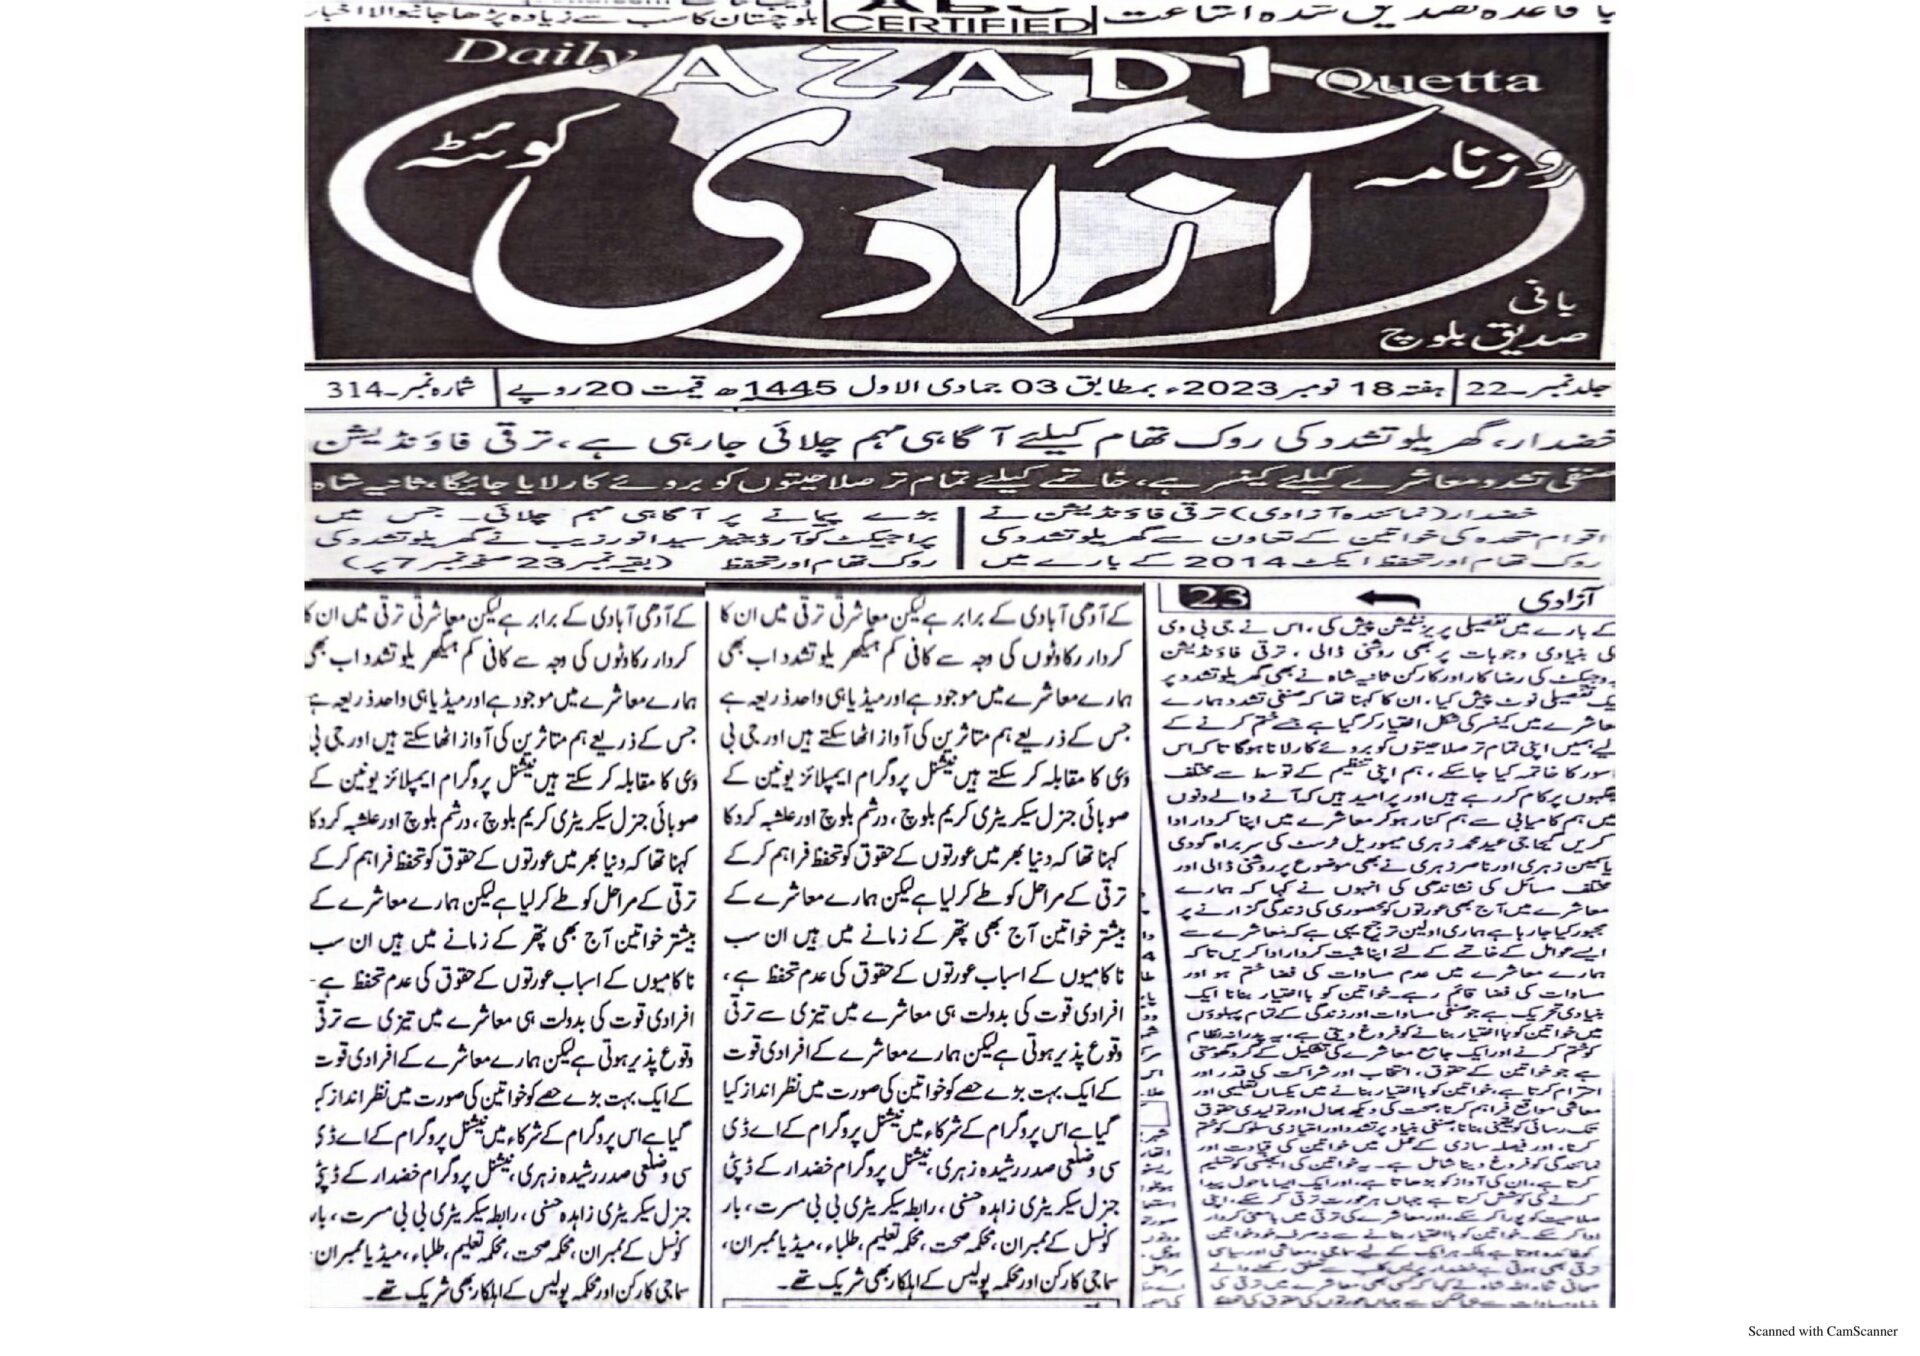 باقاعدہ تصدیق شدہ اشاعت
CERTIFIED
بلوچستان کا سب سے زیادہ پڑھا جانیوالا اخبار
Daily AZADI Quetta
روزنامہ
آزادی
کوئٹہ
بانی
صدیق بلوچ
جلد نمبر۔22
ہفتہ 18 نومبر 2023ء بمطابق 03 جمادی الاول 1445ھ قیمت 20 روپے
شمارہ نمبر۔314
خضدار، گھریلو تشدد کی روک تھام کیلئے آگاہی مہم چلائی جارہی ہے، ترقی فاؤنڈیشن
صنفی تشدد معاشرے کیلئے کینسر ہے، خاتمے کیلئے تمام تر صلاحیتوں کو بروئے کار لایا جائیگا، ثانیہ شاہ
خضدار (نمائندہ آزادی) ترقی فاؤنڈیشن نے
اقوام متحدہ کی خواتین کے تعاون سے گھریلو تشدد کی
روک تھام اور تحفظ ایکٹ 2014 کے بارے میں
بڑے پیمانے پر آگاہی مہم چلائی۔ جس میں
پراجیکٹ کوآرڈینیٹر سید اورنزیب نے گھریلو تشدد کی
روک تھام اور تحفظ (بقیہ نمبر 23 صفحہ نمبر 7 پر)
آزادی 23
کے بارے میں تفصیلی پریزنٹیشن پیش کی، اس نے جی بی وی
کی بنیادی وجوہات پر بھی روشنی ڈالی، ترقی فاؤنڈیشن
کی رضا کار اور کارکن ثانیہ شاہ نے بھی گھریلو تشدد پر
تفصیلی نوٹ پیش کیا، ان کا کہنا تھا کہ صنفی تشدد ہمارے
معاشرے میں کینسر کی شکل اختیار کر گیا ہے جسے ختم کرنے کے
لیے ہمیں اپنی تمام تر صلاحیتوں کو بروئے کار لانا ہوگا تاکہ اس
کا خاتمہ کیا جاسکے، ہم اپنی تنظیم کے توسط سے مختلف
جگہوں پر کام کر رہے ہیں اور پر امید ہیں کہ آنے والے دنوں
میں ہم کامیابی سے ہم کنار ہوکر معاشرے میں اپنا کردار ادا
کریں گے حاجی عید محمد زہری میموریل ٹرسٹ کی سربراہ گودی
یاسمین زہری اور ناصر زہری نے بھی موضوع پر روشنی ڈالی اور
مختلف مسائل کی نشاندگی کی انہوں نے کہا کہ ہمارے
معاشرے میں آج بھی عورتوں کو محصوری کی زندگی گزارنے پر
مجبور کیا جارہا ہے ہماری اولین ترجیح یہی ہے کہ معاشرے سے
ایسے عوامل کے خاتمے کے لئے اپنا مثبت کردار ادا کریں تاکہ
ہمارے معاشرے میں عدم مساوات کی فضا ختم ہو اور
مساوات کی فضا قائم رہے۔ خواتین کو با اختیار بنانا ایک
بنیادی تحریک ہے جو صنفی مساوات اور زندگی کے تمام پہلوؤں
میں خواتین کو با اختیار بنانے کو فروغ دیتی ہے، یہ پدرانہ نظام
کو ختم کرنے اور ایک جامع معاشرے کی تشکیل کے گرد گھومتی
ہے جو خواتین کے حقوق، انتخاب اور شراکت کی قدر اور
احترام کرتا ہے، خواتین کو با اختیار بنانے میں یکساں تعلیمی اور
معاشی مواقع فراہم کرنا، صحت کی دیکھ بھال اور تولیدی حقوق
تک رسائی کو یقینی بنانا، صنفی بنیاد پر تشدد اور امتیازی سلوک کو ختم
کرنا، اور فیصلہ سازی کے عمل میں خواتین کی قیادت اور
نمائندگی کو فروغ دینا شامل ہے۔ یہ خواتین کی ایجنسی کو تسلیم
کرتا ہے، ان کی آواز کو بڑھاتا ہے، اور ایک ایسا ماحول پیدا
کرنے کی کوشش کرتا ہے جہاں ہر عورت ترقی کر سکے، اپنی
صلاحیت کو پورا کر سکے، اور معاشرے کی ترقی میں بامعنی کردار
ادا کر سکے۔ خواتین کو با اختیار بنانے سے نہ صرف خود خواتین
کو فائدہ ہوتا ہے بلکہ ہر ایک کے لیے سماجی، معاشی اور سیاسی
ترقی بھی ہوتی ہے خضدار پریس کلب سے تعلق رکھنے والے
صحافی ثناء اللہ شاہ نے کہا کہ کسی بھی معاشرے میں ترقی کی
کے آدھی آبادی کے برابر ہے لیکن معاشرتی ترقی میں ان کا
کردار رکاوٹوں کی وجہ سے کافی کم ہیگھریلو تشدد اب بھی
ہمارے معاشرے میں موجود ہے اور میڈیا ہی واحد ذریعہ ہے
جس کے ذریعے ہم متاثرین کی آواز اٹھا سکتے ہیں اور جی بی
وی کا مقابلہ کر سکتے ہیں نیشنل پروگرام ایمپلائز یونین کے
صوبائی جنرل سیکریٹری کریم بلوچ، درشم بلوچ اور علشبہ کرد کا
کہنا تھا کہ دنیا بھر میں عورتوں کے حقوق کو تحفظ فراہم کر کے
ترقی کے مراحل کو طے کر لیا ہے لیکن ہمارے معاشرے کے
بیشتر خواتین آج بھی پتھر کے زمانے میں ہیں ان سب
ناکامیوں کے اسباب عورتوں کے حقوق کی عدم تحفظ ہے،
افرادی قوت کی بدولت ہی معاشرے میں تیزی سے ترقی
وقوع پذیر ہوتی ہے لیکن ہمارے معاشرے کے افرادی قوت
کے ایک بہت بڑے حصے کو خواتین کی صورت میں نظر انداز کیا
گیا ہے اس پروگرام کے شرکاء میں نیشنل پروگرام کے اے ڈی
سی و ضلعی صدر رشیدہ زہری، نیشنل پروگرام خضدار کے ڈپٹی
جنرل سیکریٹری زاہدہ حسنی، رابطہ سیکریٹری بی بی مسرت، بار
کونسل کے ممبران، محکمہ صحت، محکمہ تعلیم، طلباء، میڈیا ممبران،
سماجی کارکن اور محکمہ پولیس کے اہلکار بھی شریک تھے۔
کے آدھی آبادی کے برابر ہے لیکن معاشرتی ترقی میں ان کا
کردار رکاوٹوں کی وجہ سے کافی کم ہیگھریلو تشدد اب بھی
ہمارے معاشرے میں موجود ہے اور میڈیا ہی واحد ذریعہ ہے
جس کے ذریعے ہم متاثرین کی آواز اٹھا سکتے ہیں اور جی بی
وی کا مقابلہ کر سکتے ہیں نیشنل پروگرام ایمپلائز یونین کے
صوبائی جنرل سیکریٹری کریم بلوچ، درشم بلوچ اور علشبہ کرد کا
کہنا تھا کہ دنیا بھر میں عورتوں کے حقوق کو تحفظ فراہم کر کے
ترقی کے مراحل کو طے کر لیا ہے لیکن ہمارے معاشرے کے
بیشتر خواتین آج بھی پتھر کے زمانے میں ہیں ان سب
ناکامیوں کے اسباب عورتوں کے حقوق کی عدم تحفظ ہے۔
افرادی قوت کی بدولت ہی معاشرے میں تیزی سے ترقی
وقوع پذیر ہوتی ہے لیکن ہمارے معاشرے کے افرادی قوت
کے ایک بہت بڑے حصے کو خواتین کی صورت میں نظر انداز
گیا ہے اس پروگرام کے شرکاء میں نیشنل پروگرام کے اے ڈی
سی و ضلعی صدر رشیدہ زہری، نیشنل پروگرام خضدار کے ڈپٹی
جنرل سیکریٹری زاہدہ حسنی، رابطہ سیکریٹری بی بی مسرت، بار
کونسل کے ممبران، محکمہ صحت، محکمہ تعلیم، طلباء، میڈیا ممبران،
سماجی کارکن اور محکمہ پولیس کے اہلکار بھی شریک تھے۔
Scanned with CamScanner